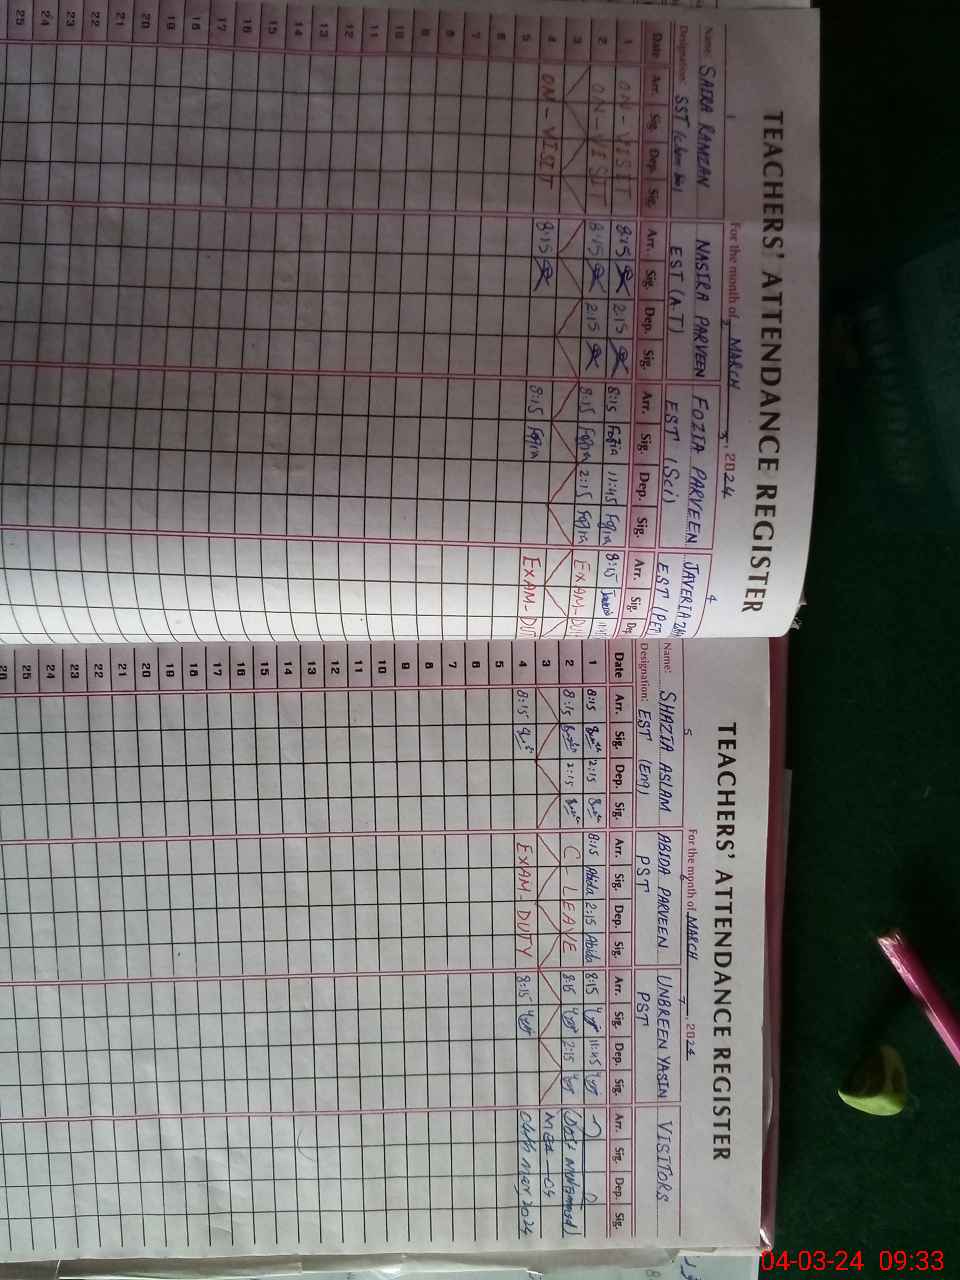 TEACHERS' ATTENDANCE REGISTER
For the month of MARCH, 2024
1 2 3 4
Name: SAIRA RAMZAN NASIRA PARVEEN FOZIA PARVEEN JAVERIA
Designation: SST EST (A.T) EST (Sci) EST (PET
Date Arr. Sig. Dep. Sig. Arr. Sig. Dep. Sig. Arr. Sig. Dep. Sig. Arr. Sig. Dep.
1 ON-VISIT 8:15 2:15 8:15 Fozia 11:45 Fozia 8:15
2 ON-VISIT 8:15 2:15 8:15 Fozia 2:15 Fozia EXAM-DU
3
4 ON-VISIT 8:15 8:15 Fozia EXAM-DUT
5
6
7
8
9
10
11
12
13
14
15
16
17
18
19
20
21
22
23
24
25
TEACHERS' ATTENDANCE REGISTER
For the month of MARCH, 2024
5 6 7
Name: SHAZIA ASLAM ABIDA PARVEEN UNBREEN YASIN VISITORS
Designation: EST (Eng) PST PST
Date Arr. Sig. Dep. Sig. Arr. Sig. Dep. Sig. Arr. Sig. Dep. Sig. Arr. Sig. Dep. Sig.
1 8:15 2:15 8:15 Abida 2:15 Abida 8:15 11:45
2 8:15 2:15 C-LEAVE 8:15 2:15
3
4 8:15 EXAM-DUTY 8:15 04th mar, 2024
5
6
7
8
9
10
11
12
13
14
15
16
17
18
19
20
21
22
23
24
25
26
04-03-24 09:33